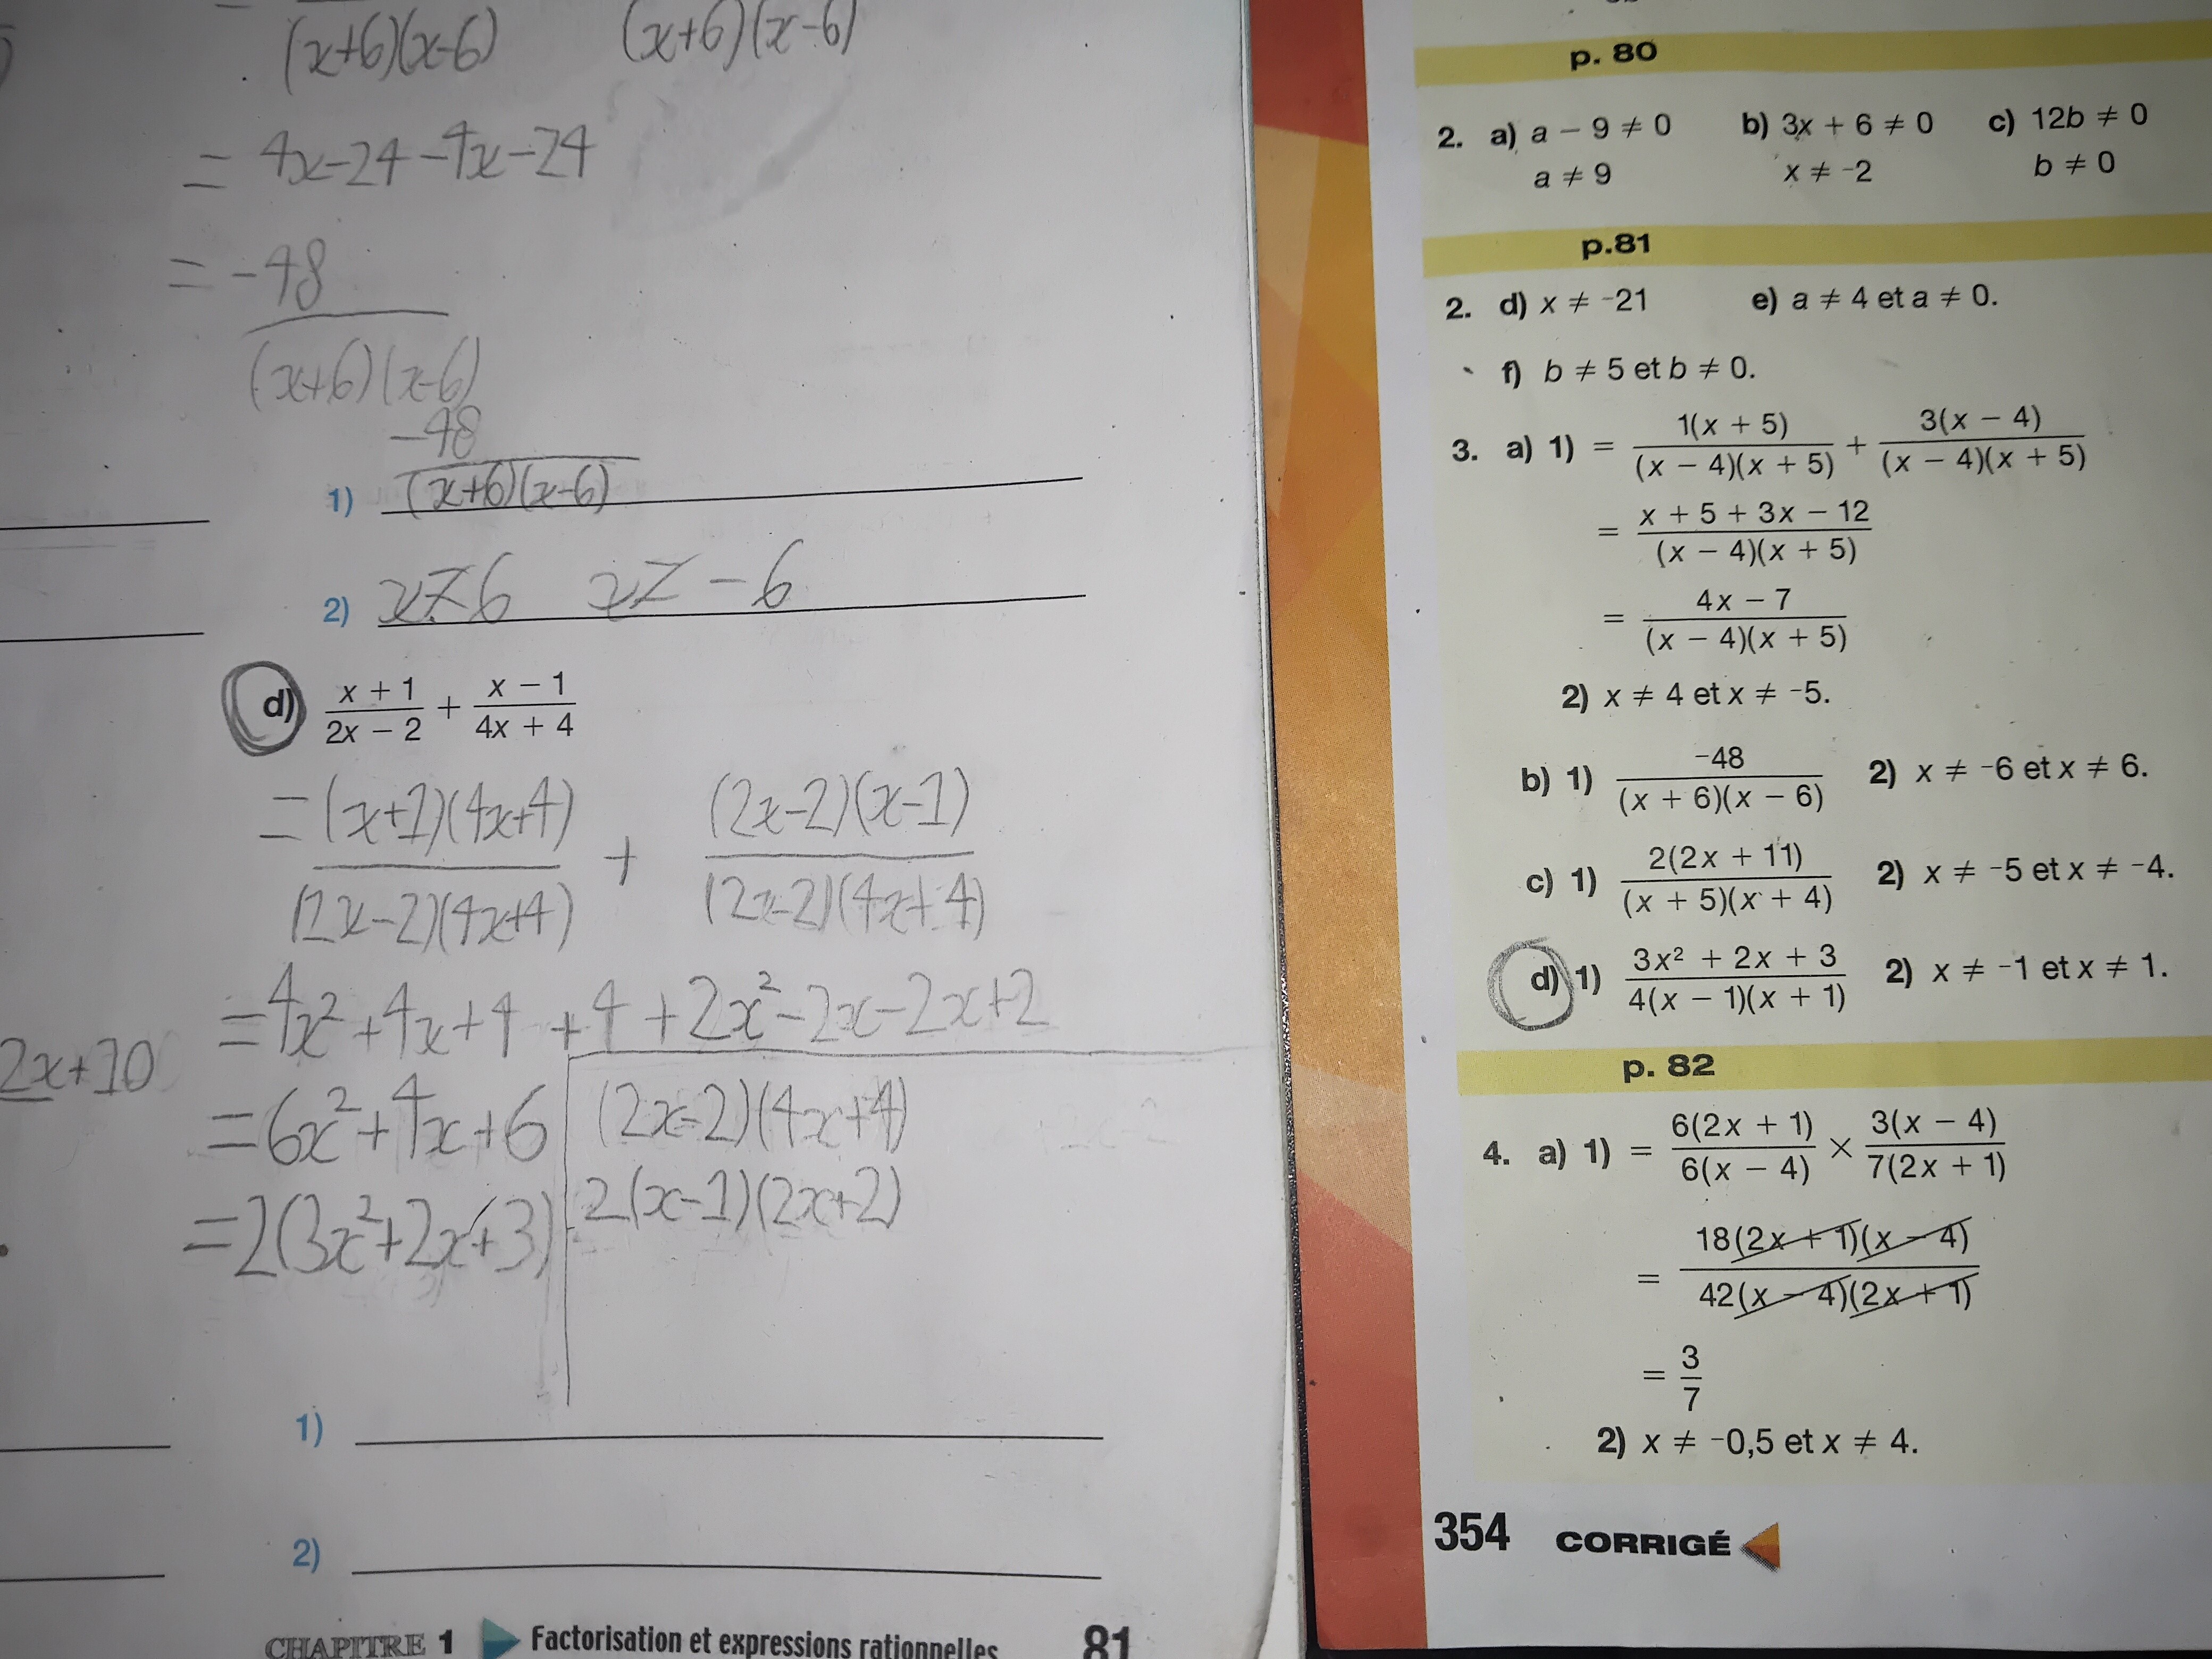 (x+6)(x-6) (x+6)(x-6)
= 4x-24-4x-24
= -48
(x+6)(x-6)
-48
1) (x+6)(x-6)
2) x≠6 x≠-6
d) x + 1 / 2x − 2 + x − 1 / 4x + 4
= (x+1)(4x+4) / (2x-2)(4x+4) + (2x-2)(x-1) / (2x-2)(4x+4)
= 4x²+4x+4+4+2x²-2x-2x+2
2x+10
= 6x²+4x+6 (2x-2)(4x+4)
= 2(3x²+2x+3) 2(x-1)(2x+2)
1)
2)
CHAPITRE 1 Factorisation et expressions rationnelles 81
p. 80
2. a) a − 9 ≠ 0 b) 3x + 6 ≠ 0 c) 12b ≠ 0
a ≠ 9 x ≠ -2 b ≠ 0
p.81
2. d) x ≠ -21 e) a ≠ 4 et a ≠ 0.
f) b ≠ 5 et b ≠ 0.
3. a) 1) = 1(x + 5) / (x − 4)(x + 5) + 3(x − 4) / (x − 4)(x + 5)
= x + 5 + 3x − 12 / (x − 4)(x + 5)
= 4x − 7 / (x − 4)(x + 5)
2) x ≠ 4 et x ≠ -5.
b) 1) -48 / (x + 6)(x − 6) 2) x ≠ -6 et x ≠ 6.
c) 1) 2(2x + 11) / (x + 5)(x + 4) 2) x ≠ -5 et x ≠ -4.
d) 1) 3x² + 2x + 3 / 4(x − 1)(x + 1) 2) x ≠ -1 et x ≠ 1.
p. 82
4. a) 1) = 6(2x + 1) / 6(x − 4) × 3(x − 4) / 7(2x + 1)
= 18(2x + 1)(x − 4) / 42(x − 4)(2x + 1)
= 3 / 7
2) x ≠ -0,5 et x ≠ 4.
354 CORRIGÉ